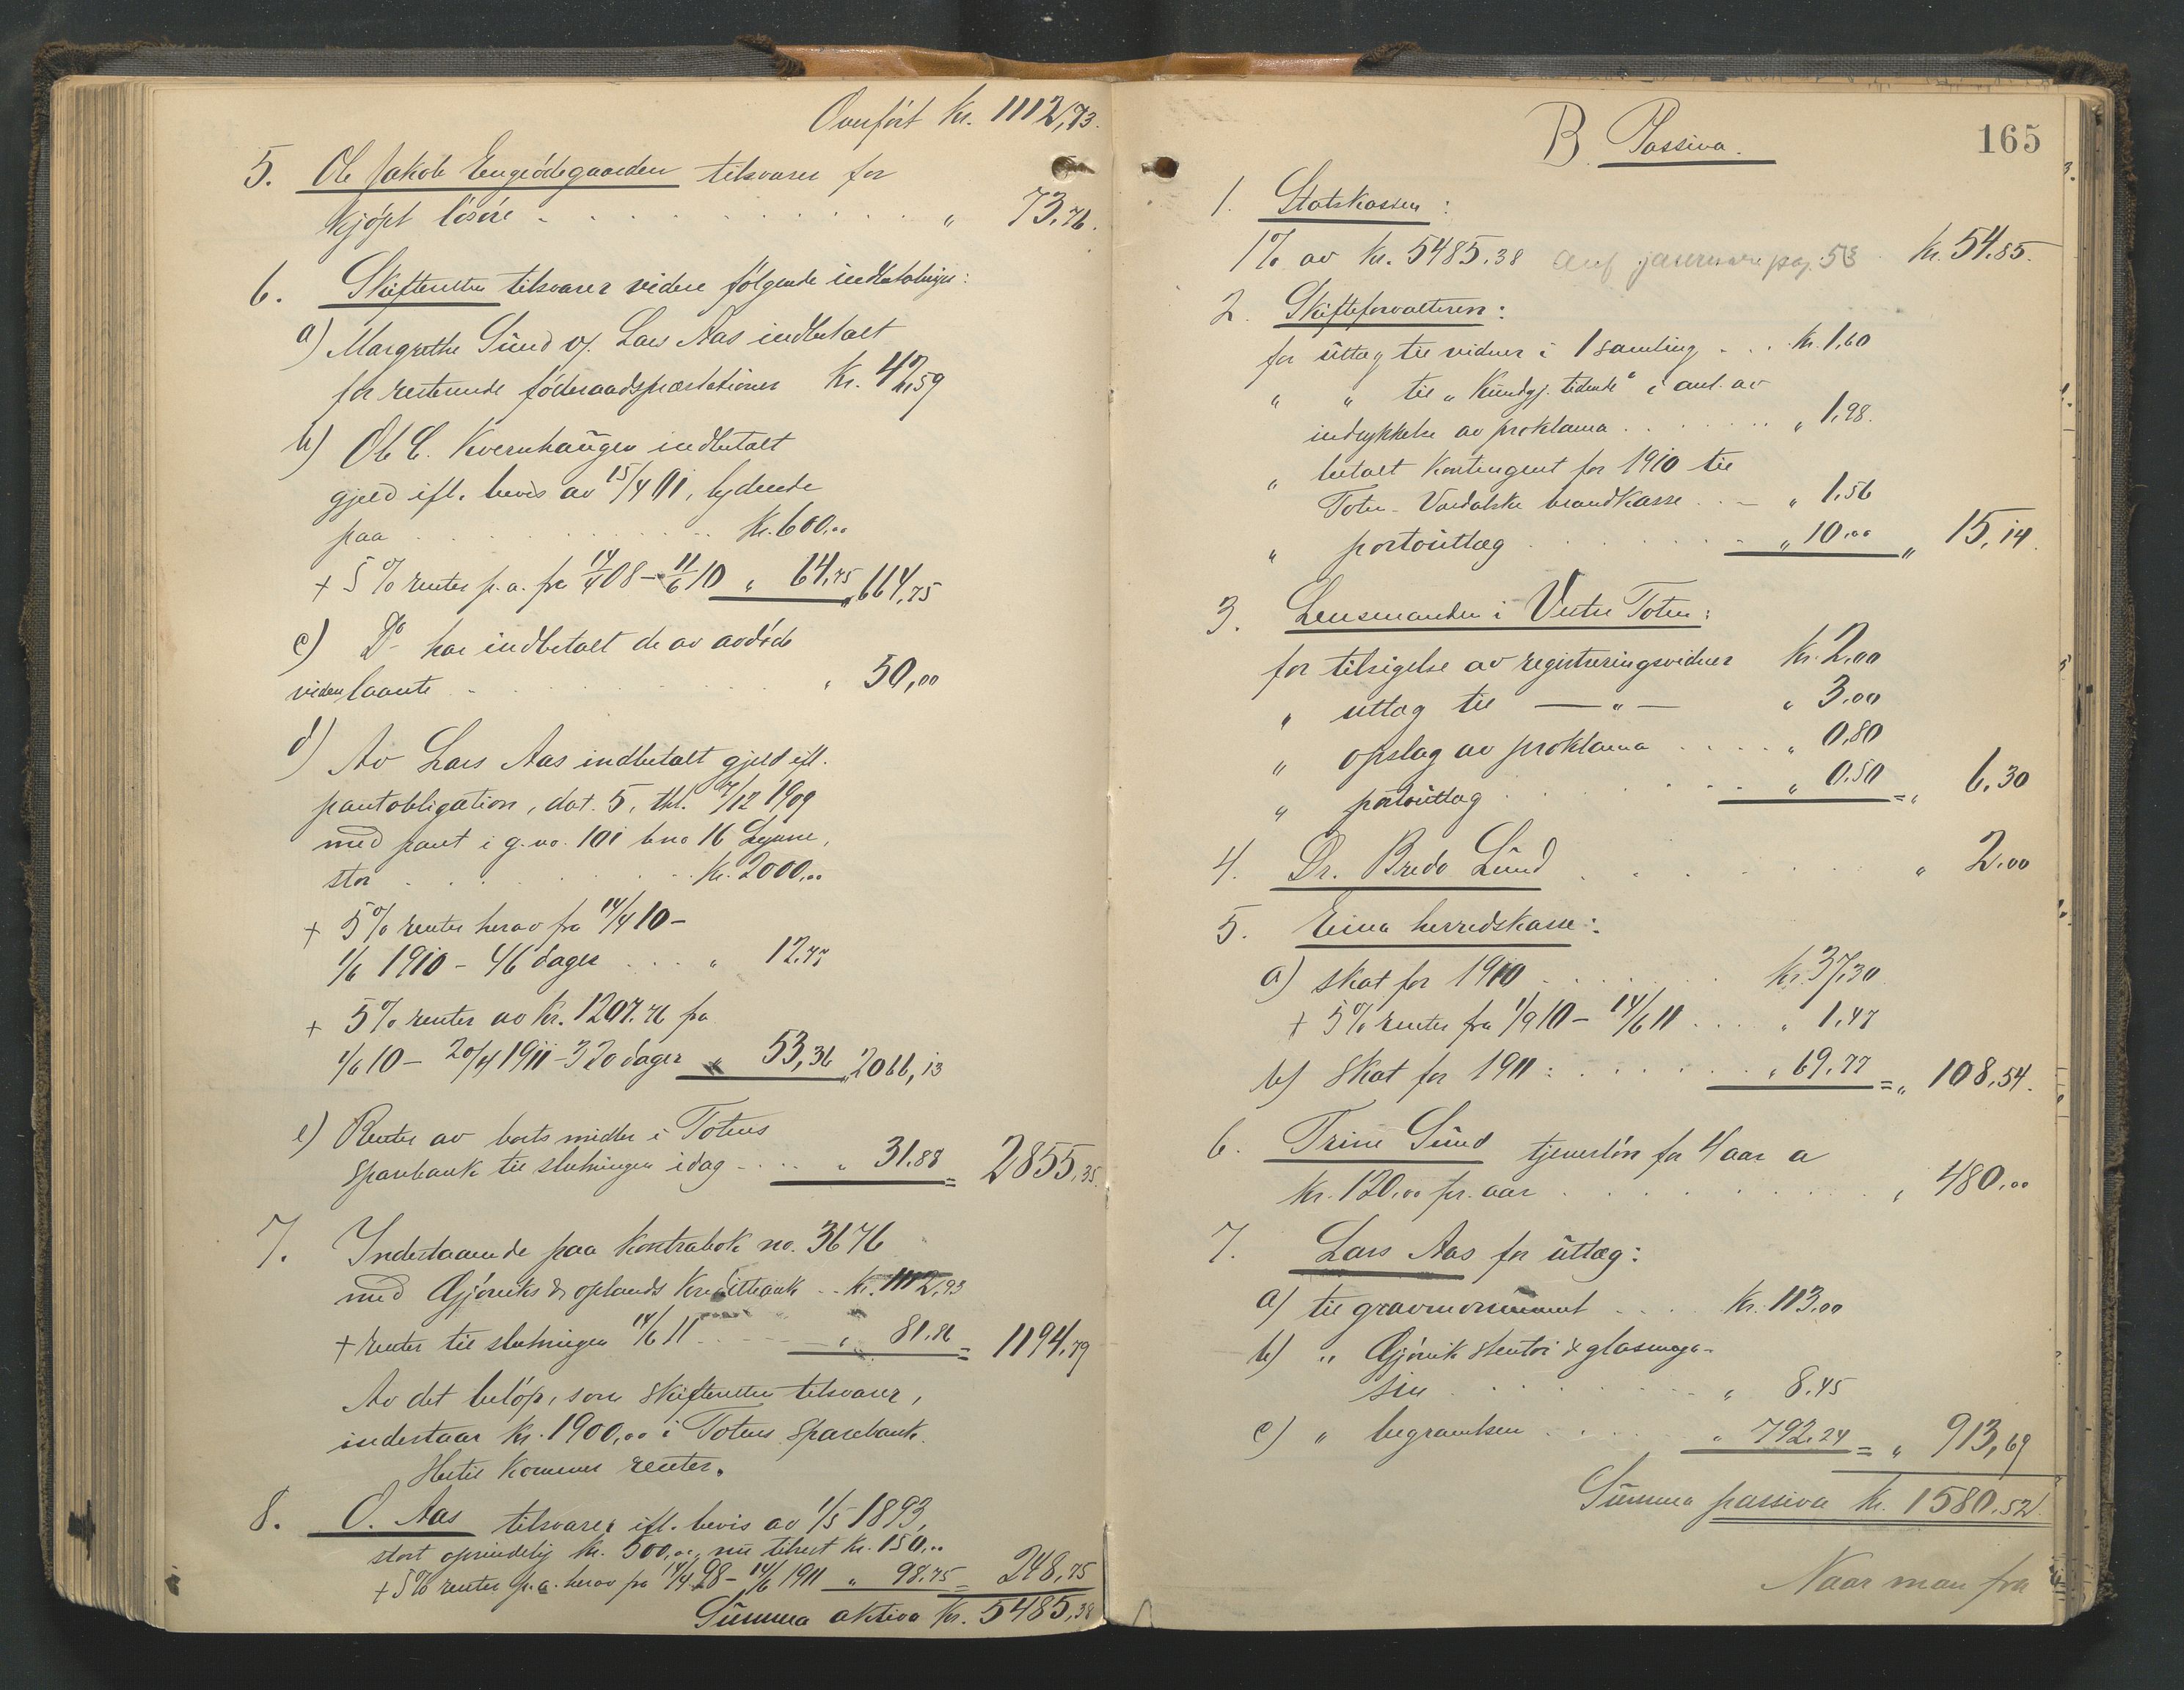 Overført Kr. 1112,73.
5. Ole Jakob Engeødegaarden tilsvarer for
kjøpt løsøre . . . . . . . . . . . " 73,76.
6. Skifteretten tilsvarer videre følgende indbetalinger:
a) Margrethe Sund v/ Lars Aas indbetalt
for resterende føderaadspræstationer Kr. 42,59
b) Ole C. Kvernhaugen indbetalt
gjeld ifl. bevis av 15/4 01, lydende
paa . . . . . . . . Kr. 600,00
+ 5 % renter p. a. fra 14/4 08 - 11/6 10 " 64,75 " 664,75
c) Do har indbetalt de av avdøde
viden laante . . . . . . . " 50,00
d) Av Lars Aas indbetalt gjeld ifl.
pantobligation, dat. 5, thl. 7/12 1909
med pant i g. no. 101 b no 16
stor . . . . . . Kr. 2000,00
+ 5% renter herav fra 14/4 10 -
1/6 1910 - 46 dager . . . " 12,77
+ 5% renter av Kr. 1207.76 fra
1/6 10 - 20/4 1911 - 320 dager " 53,36 " 2066,13
e) Renter av boets midler i Totens
Sparebank til slutningen idag - . . . " 31.88 = 2855,35.
7. Indestaaende paa kontrabok no. 3676
med Gjøviks & oplands Kreditbank . . Kr. 1112,93
+ renter til slutningen 14/6 11 . . . " 81.86 = 1194,79
Av det beløp, som skifteretten tilsvarer,
indestaar Kr. 1900,00 i Totens Sparebank.
Hertil kommer renter.
8. O. Aas tilsvarer ifl. bevis av 1/5 1893,
stort oprindelig Kr. 500,00, nu tilrest Kr. 150,00
+ 5% renter p. a. herav fra 14/4 98 - 14/6 1911 " 98.75 = 248,75
Summa aktiva Kr. 5485,38
165
B. Passiva.
1. Statskassen:
1% av Kr. 5485.38 pag. 53 Kr. 54.85.
2. Skifteforvalteren:
for utlæg til vidner i 1 samling . . . Kr. 1,60
" " til „Kundgj. tidende" i anl. av
indrykkelse av proklama . . . . . . . " 1,98.
" betalt Kontingent for 1910 til
Toten-Vardalske brandkasse . . - " 1,56
" portoutlæg . . . . . . . " 10.00 " 15,14.
3. Lensmanden i Vestre Toten:
for tilsigelse av registreringsvidner Kr. 2.00
" utlæg til — " — " 3.00
" opslag av proklama . . . . . " 0,80
" portoutlæg . . . . . . . " 0.50 = " 6.30
4. Dr. Bredo Lund . . . . . . . " 2.00
5. Eina herredskasse:
a) skat for 1910 . . . . . . Kr. 37,30
+ 5% renter fra 1/9 10 - 14/6 11 . . . . " 1,47
b) Skat for 1911 : . . . . . . " 69.77 = " 108,54.
6. Trine Sund tjenerløn for 4 aar a
Kr. 120,00 pr. aar . . . . . . . . " 480.00
7. Lars Aas for utlæg:
a) til gravmonument . . . . Kr. 113,00
b) " Gjøvik stentøi & glasmaga-
sin . . . . . . . " 8.45
c) " begravelsen . . . . . " 792.24 = " 913,69
Summa passiva Kr. 1580.52.
Naar man fra